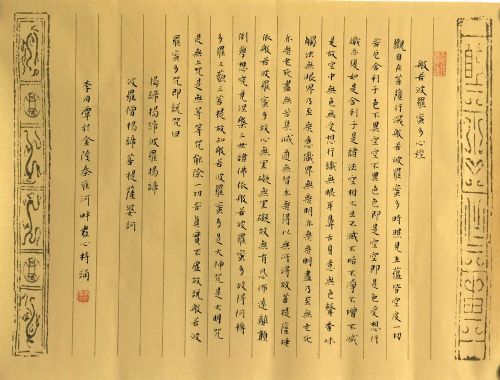 般若波羅蜜多心經
觀自在菩薩行深般若波羅蜜多時照見五蘊皆空度一切
苦厄舍利子色不異空空不異色色即是空空即是色受想行
識亦復如是舍利子是諸法空相不生不滅不垢不淨不增不減
是故空中無色無受想行識無眼耳鼻舌身意無色聲香味
觸法無眼界乃至無意識界無無明亦無無明盡乃至無老死
亦無老死盡無苦集滅道無智亦無得以無所得故菩提薩埵
依般若波羅蜜多故心無罣礙無罣礙故無有恐怖遠離顛
倒夢想究竟涅槃三世諸佛依般若波羅蜜多故得阿耨
多羅三藐三菩提故知般若波羅蜜多是大神咒是大明咒
是無上咒是無等等咒能除一切苦真實不虛故說般若波
羅蜜多咒即說咒曰
揭諦揭諦波羅揭諦
波羅僧揭諦菩提薩婆訶
於金陵秦淮河畔 心持誦